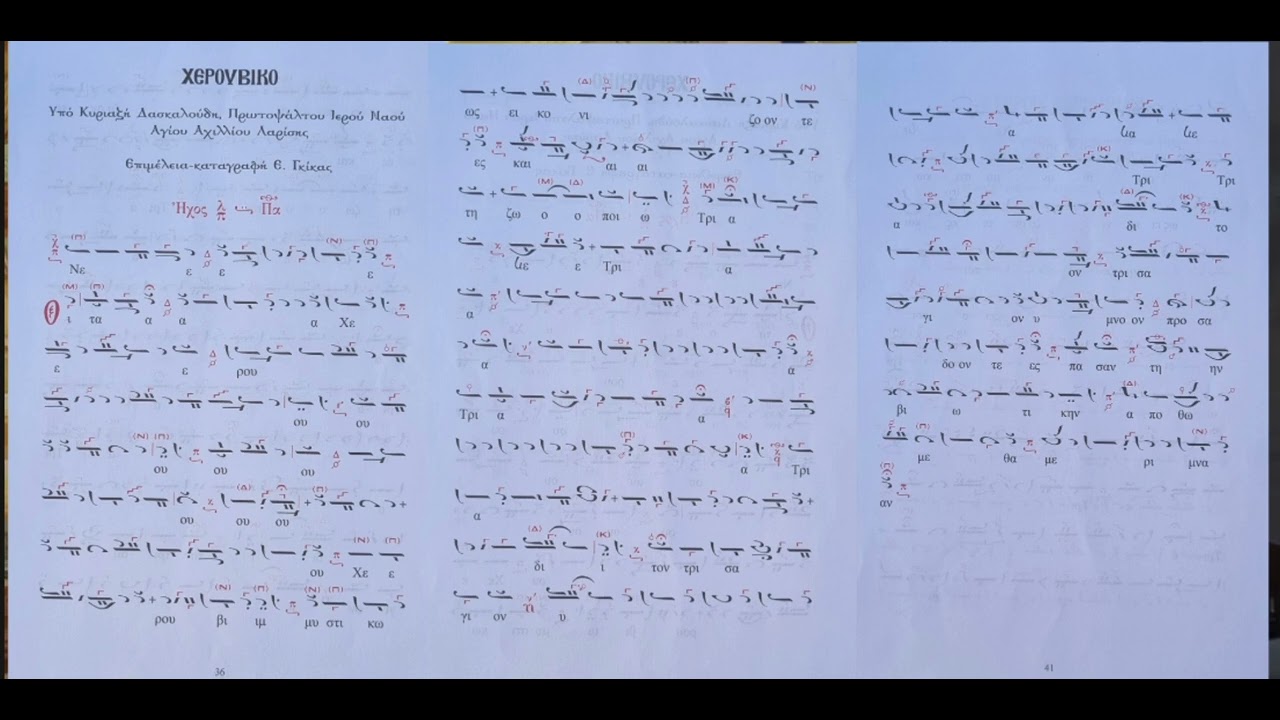 ΧΕΡΟΥΒΙΚΟ
Υπό Κυριαζή Δασκαλούδη, Πρωτοψάλτου Ιερού Ναού
Αγίου Αχιλλίου Λαρίσης
Επιμέλεια-καταγραφή Ε. Γκίκας
Ήχος Πα
Νε ε ε ε
ι τα α α α Χε
ε ε ρου
ου ου
ου ου ου
ου ου ου
ου Χε ε
ρου βι ιμ μυ στι κω
36
ως ει κο νι ζο ον τε
ες και αι αι
τη ζω ο ο ποι ω Τρι α
ε Τρι α
α
α α
Τρι α α
α Τρι
α
δι ι τον τρι σα
γι ον υ
α
Τρι Τρι
α δι το
ον τρι σα
γι ον υ μνο ον προ σα
δο ον τε ες πα σαν τη ην
βι ω τι κην α πο θω
με θα με ρι μνα
αν
41